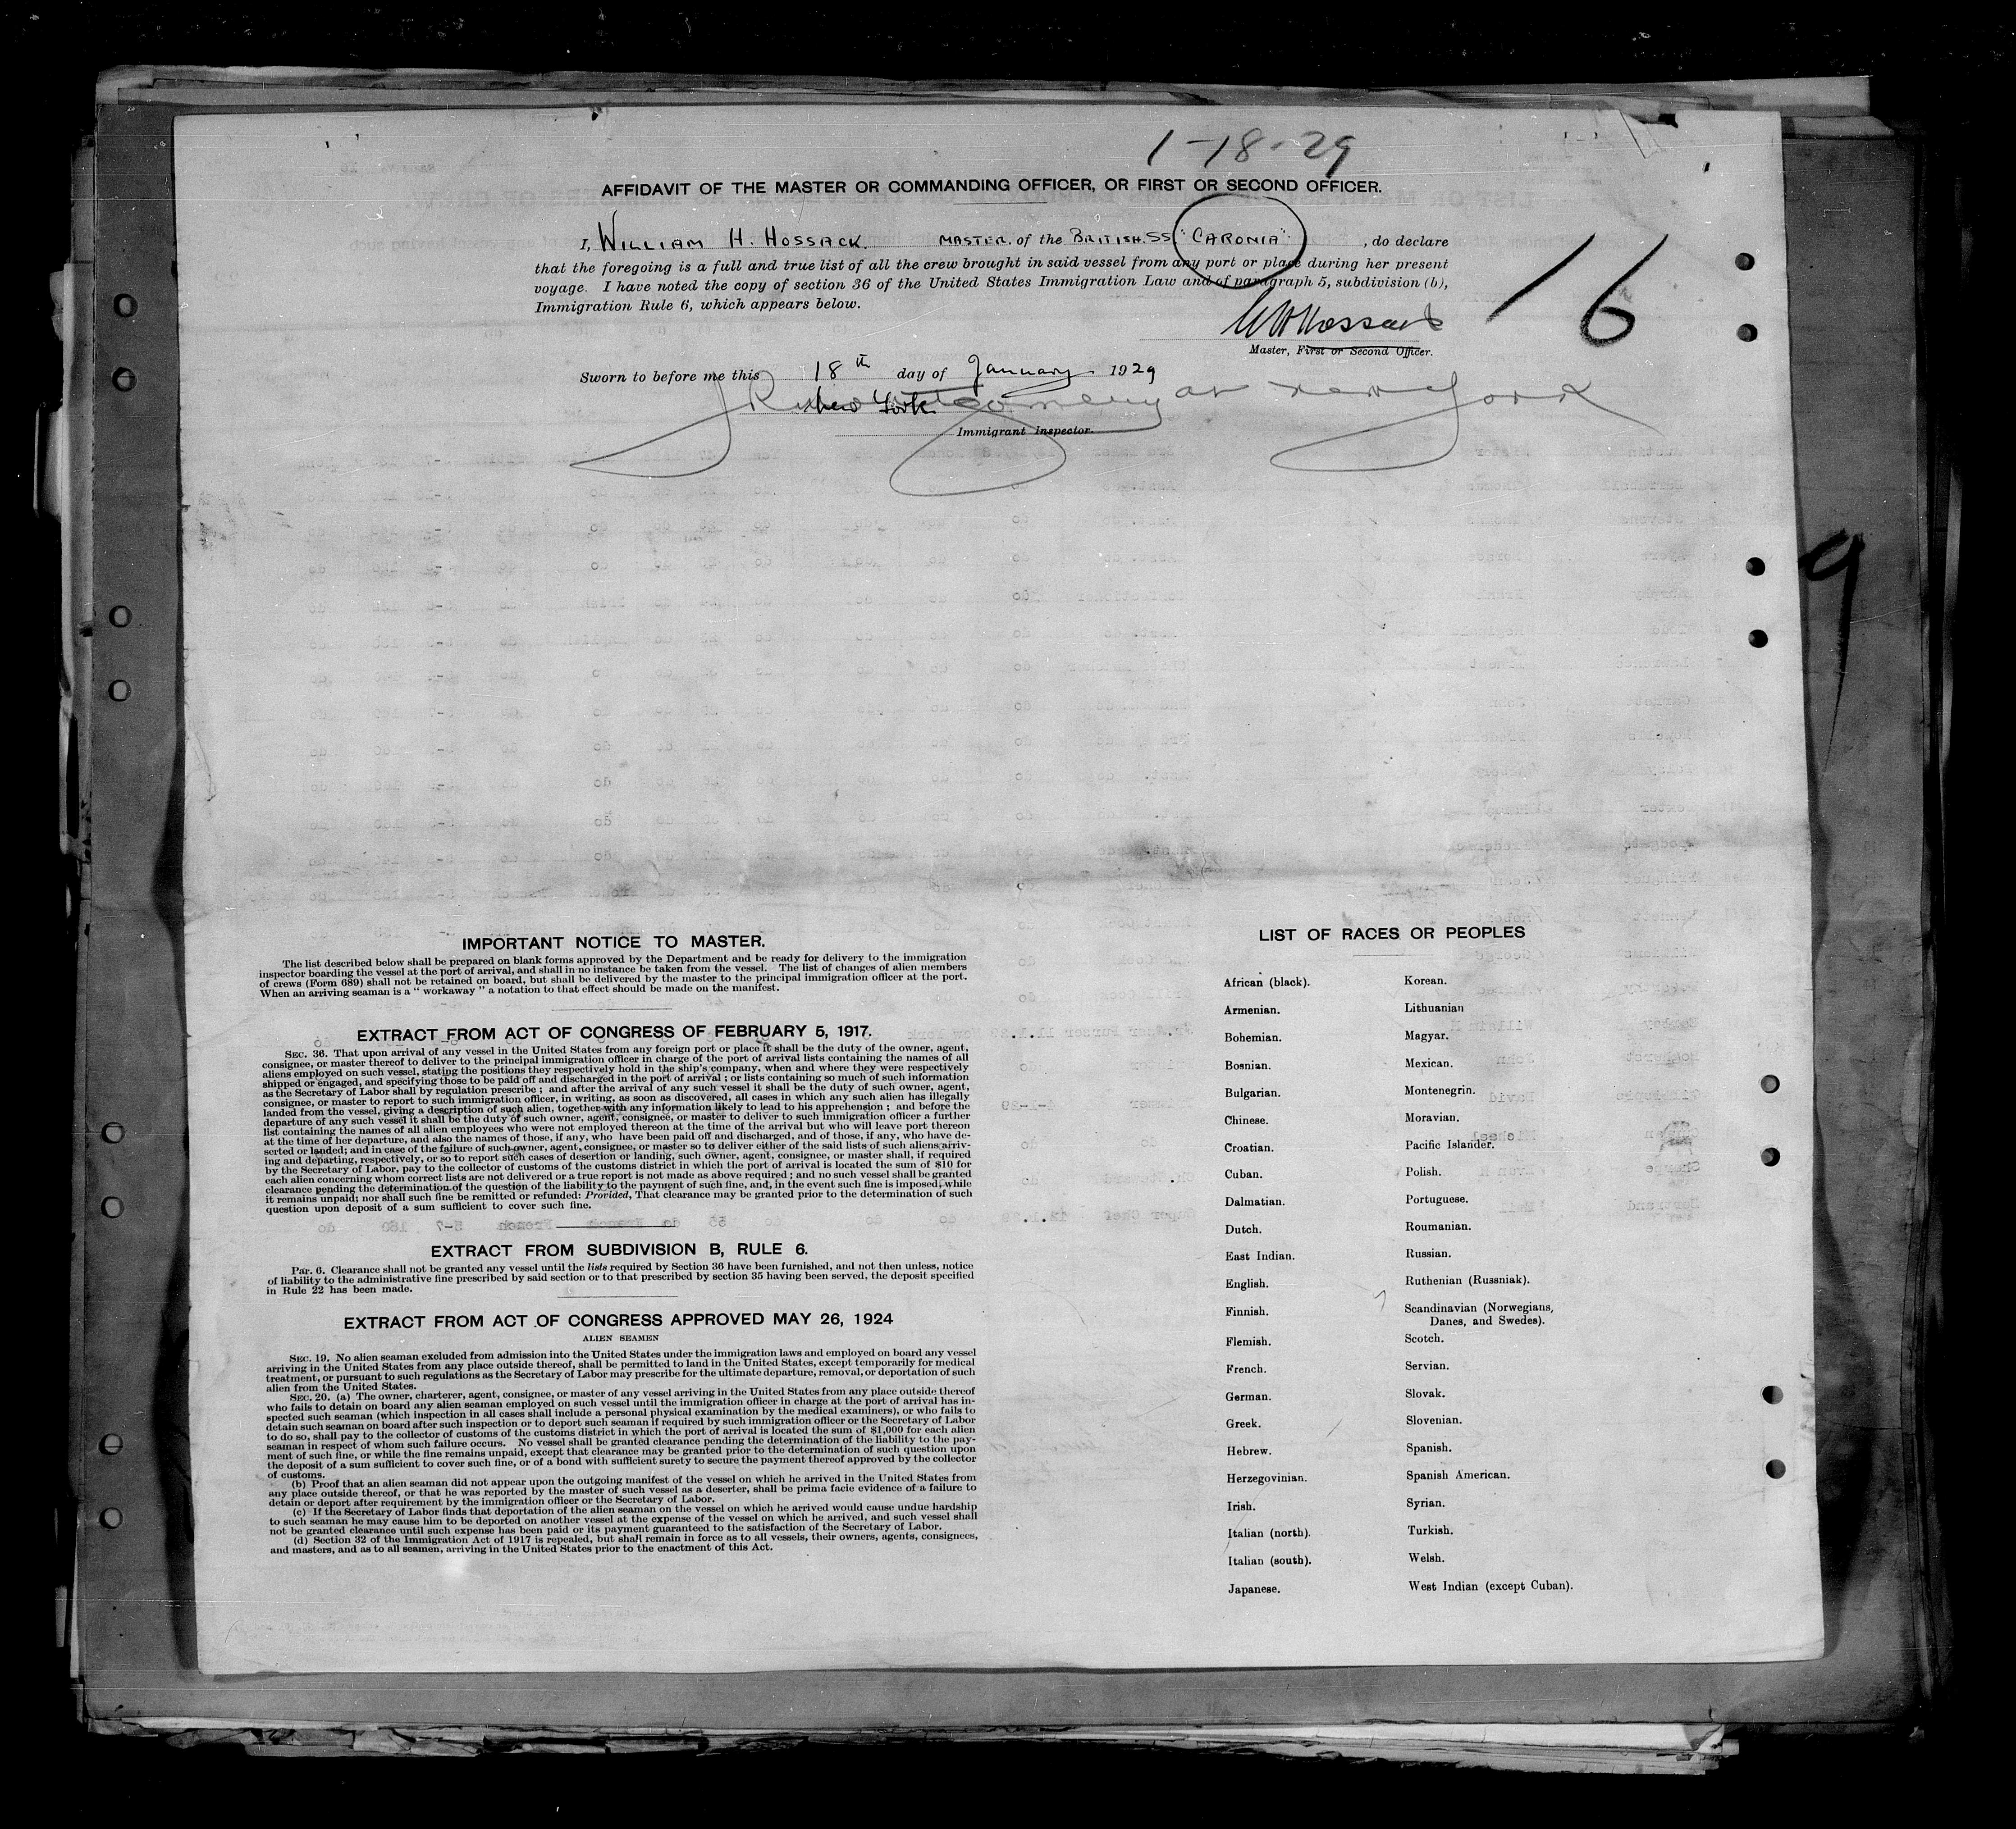 1-18-29
AFFIDAVIT OF THE MASTER OR COMMANDING OFFICER, OR FIRST OR SECOND OFFICER.
I, WILLIAM H. HOSSACK. MASTER. of the BRITISH. SS "CARONIA" , do declare
that the foregoing is a full and true list of all the crew brought in said vessel from any port or place during her present
voyage. I have noted the copy of section 36 of the United States Immigration Law and of paragraph 5, subdivision (b),
Immigration Rule 6, which appears below.
16
WHHossack
Master, First or Second Officer.
Sworn to before me this 18th day of January 1929
New York at New York
Immigrant Inspector.
9
IMPORTANT NOTICE TO MASTER.
The list described below shall be prepared on blank forms approved by the Department and be ready for delivery to the immigration
inspector boarding the vessel at the port of arrival, and shall in no instance be taken from the vessel. The list of changes of alien members
of crews (Form 689) shall not be retained on board, but shall be delivered by the master to the principal immigration officer at the port.
When an arriving seaman is a " workaway " a notation to that effect should be made on the manifest.
EXTRACT FROM ACT OF CONGRESS OF FEBRUARY 5, 1917.
SEC. 36. That upon arrival of any vessel in the United States from any foreign port or place it shall be the duty of the owner, agent,
consignee, or master thereof to deliver to the principal immigration officer in charge of the port of arrival lists containing the names of all
aliens employed on such vessel, stating the positions they respectively hold in the ship's company, when and where they were respectively
shipped or engaged, and specifying those to be paid off and discharged in the port of arrival ; or lists containing so much of such information
as the Secretary of Labor shall by regulation prescribe ; and after the arrival of any such vessel it shall be the duty of such owner, agent,
consignee, or master to report to such immigration officer, in writing, as soon as discovered, all cases in which any such alien has illegally
landed from the vessel, giving a description of such alien, together with any information likely to lead to his apprehension ; and before the
departure of any such vessel it shall be the duty of such owner, agent, consignee, or master to deliver to such immigration officer a further
list containing the names of all alien employees who were not employed thereon at the time of the arrival but who will leave port thereon
at the time of her departure, and also the names of those, if any, who have been paid off and discharged, and of those, if any, who have de-
serted or landed; and in case of the failure of such owner, agent, consignee, or master so to deliver either of the said lists of such aliens arriv-
ing and departing, respectively, or so to report such cases of desertion or landing, such owner, agent, consignee, or master shall, if required
by the Secretary of Labor, pay to the collector of customs of the customs district in which the port of arrival is located the sum of $10 for
each alien concerning whom correct lists are not delivered or a true report is not made as above required ; and no such vessel shall be granted
clearance pending the determination of the question of the liability to the payment of such fine, and, in the event such fine is imposed, while
it remains unpaid; nor shall such fine be remitted or refunded: Provided, That clearance may be granted prior to the determination of such
question upon deposit of a sum sufficient to cover such fine.
EXTRACT FROM SUBDIVISION B, RULE 6.
Par. 6. Clearance shall not be granted any vessel until the lists required by Section 36 have been furnished, and not then unless, notice
of liability to the administrative fine prescribed by said section or to that prescribed by section 35 having been served, the deposit specified
in Rule 22 has been made.
EXTRACT FROM ACT OF CONGRESS APPROVED MAY 26, 1924
ALIEN SEAMEN
SEC. 19. No alien seaman excluded from admission into the United States under the immigration laws and employed on board any vessel
arriving in the United States from any place outside thereof, shall be permitted to land in the United States, except temporarily for medical
treatment, or pursuant to such regulations as the Secretary of Labor may prescribe for the ultimate departure, removal, or deportation of such
alien from the United States.
SEC. 20. (a) The owner, charterer, agent, consignee, or master of any vessel arriving in the United States from any place outside thereof
who fails to detain on board any alien seaman employed on such vessel until the immigration officer in charge at the port of arrival has in-
spected such seaman (which inspection in all cases shall include a personal physical examination by the medical examiners), or who fails to
detain such seaman on board after such inspection or to deport such seaman if required by such immigration officer or the Secretary of Labor
to do so, shall pay to the collector of customs of the customs district in which the port of arrival is located the sum of $1,000 for each alien
seaman in respect of whom such failure occurs. No vessel shall be granted clearance pending the determination of the liability to the pay-
ment of such fine, or while the fine remains unpaid, except that clearance may be granted prior to the determination of such question upon
the deposit of a sum sufficient to cover such fine, or of a bond with sufficient surety to secure the payment thereof approved by the collector
of customs.
(b) Proof that an alien seaman did not appear upon the outgoing manifest of the vessel on which he arrived in the United States from
any place outside thereof, or that he was reported by the master of such vessel as a deserter, shall be prima facie evidence of a failure to
detain or deport after requirement by the immigration officer or the Secretary of Labor.
(c) If the Secretary of Labor finds that deportation of the alien seaman on the vessel on which he arrived would cause undue hardship
to such seaman he may cause him to be deported on another vessel at the expense of the vessel on which he arrived, and such vessel shall
not be granted clearance until such expense has been paid or its payment guaranteed to the satisfaction of the Secretary of Labor.
(d) Section 32 of the Immigration Act of 1917 is repealed, but shall remain in force as to all vessels, their owners, agents, consignees,
and masters, and as to all seamen, arriving in the United States prior to the enactment of this Act.
LIST OF RACES OR PEOPLES
African (black).
Armenian.
Bohemian.
Bosnian.
Bulgarian.
Chinese.
Croatian.
Cuban.
Dalmatian.
Dutch.
East Indian.
English.
Finnish.
Flemish.
French.
German.
Greek.
Hebrew.
Herzegovinian.
Irish.
Italian (north).
Italian (south).
Japanese.
Korean.
Lithuanian
Magyar.
Mexican.
Montenegrin.
Moravian.
Pacific Islander.
Polish.
Portuguese.
Roumanian.
Russian.
Ruthenian (Russniak).
Scandinavian (Norwegians,
Danes, and Swedes).
Scotch.
Servian.
Slovak.
Slovenian.
Spanish.
Spanish American.
Syrian.
Turkish.
Welsh.
West Indian (except Cuban).